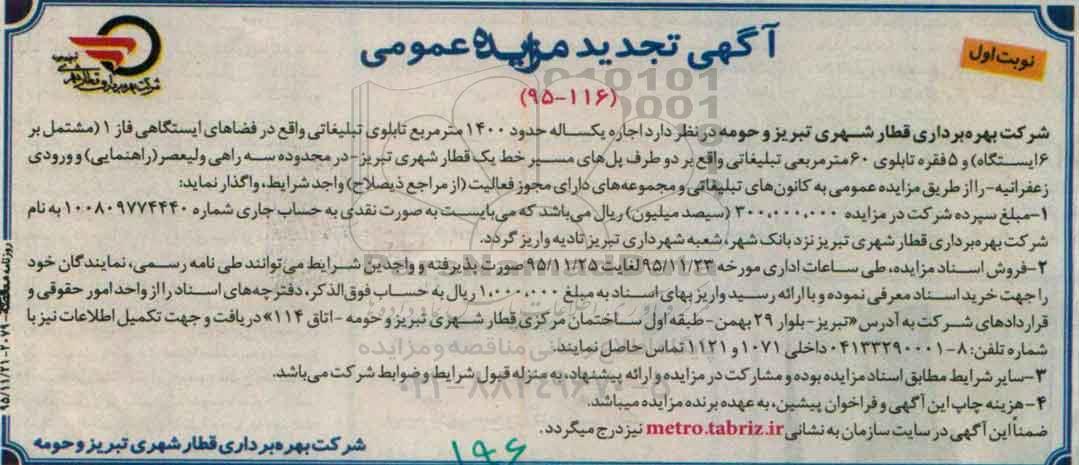 آگهی تجدید مزایده عمومی
نوبت اول
(۹۵-۱۱۶)
شرکت بهره‌برداری قطار شهری تبریز و حومه در نظر دارد اجاره یکساله حدود ۱۴۰۰ مترمربع تابلوی تبلیغاتی واقع در فضاهای ایستگاهی فاز ۱ (مشتمل بر
۶ایستگاه) و ۵ فقره تابلوی ۶۰مترمربعی تبلیغاتی واقع بر دو طرف پل‌های مسیر خط یک قطار شهری تبریز-در محدوده سه راهی ولیعصر(راهنمایی) و ورودی
زعفرانیه-را از طریق مزایده عمومی به کانون‌های تبلیغاتی و مجموعه‌های دارای مجوز فعالیت (از مراجع ذیصلاح) واجد شرایط، واگذار نماید:
۱-مبلغ سپرده شرکت در مزایده ۳۰۰,۰۰۰,۰۰۰ (سیصد میلیون) ریال می‌باشد که می‌بایست به صورت نقدی به حساب جاری شماره ۱۰۰۸۰۹۷۷۴۴۴۰ به نام
شرکت بهره‌برداری قطار شهری تبریز نزد بانک شهر، شعبه شهرداری تبریز تادیه واریز گردد.
۲-فروش اسناد مزایده، طی ساعات اداری مورخه ۹۵/۱۱/۲۳ لغایت ۹۵/۱۱/۲۵ صورت پذیرفته و واجدین شرایط می‌توانند طی نامه رسمی، نمایندگان خود
را جهت خرید اسناد معرفی نموده و با ارائه رسید واریز بهای اسناد به مبلغ ۱,۰۰۰,۰۰۰ ریال به حساب فوق‌الذکر، دفترچه‌های اسناد را از واحد امور حقوقی و
قراردادهای شرکت به آدرس «تبریز-بلوار ۲۹ بهمن-طبقه اول ساختمان مرکزی قطار شهری تبریز و حومه -اتاق ۱۱۴» دریافت و جهت تکمیل اطلاعات نیز با
شماره تلفن: ۸-۰۴۱۳۳۲۹۰۰۰۱ داخلی ۱۰۷۱ و ۱۱۲۱ تماس حاصل نمایند.
۳-سایر شرایط مطابق اسناد مزایده بوده و مشارکت در مزایده و ارائه پیشنهاد، به منزله قبول شرایط و ضوابط شرکت می‌باشد.
۴-هزینه چاپ این آگهی و فراخوان پیشین، به عهده برنده مزایده میباشد.
ضمناً این آگهی در سایت سازمان به نشانی metro.tabriz.ir نیز درج میگردد.
شرکت بهره‌برداری قطار شهری تبریز و حومه
۱۹۶